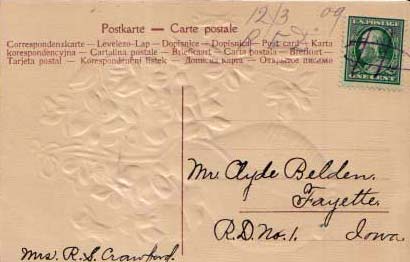 12/3 09
R.F.D.
U.S. POSTAGE
ONE CENT
Postkarte — Carte postale
Correspondenzkarte — Levelezo-Lap — Dopisnice — Dopisnica — Post card — Karta
korespondencyjna — Cartolina postale — Briefkaart — Carta postala — Brefkort —
Tarjeta postal — Korespondenční listek — Дописна карта — Открытое письмо
Mr. Clyde Belden.
Fayette.
R.D. No. 1. Iowa.
Mrs. R. S. Crawford.